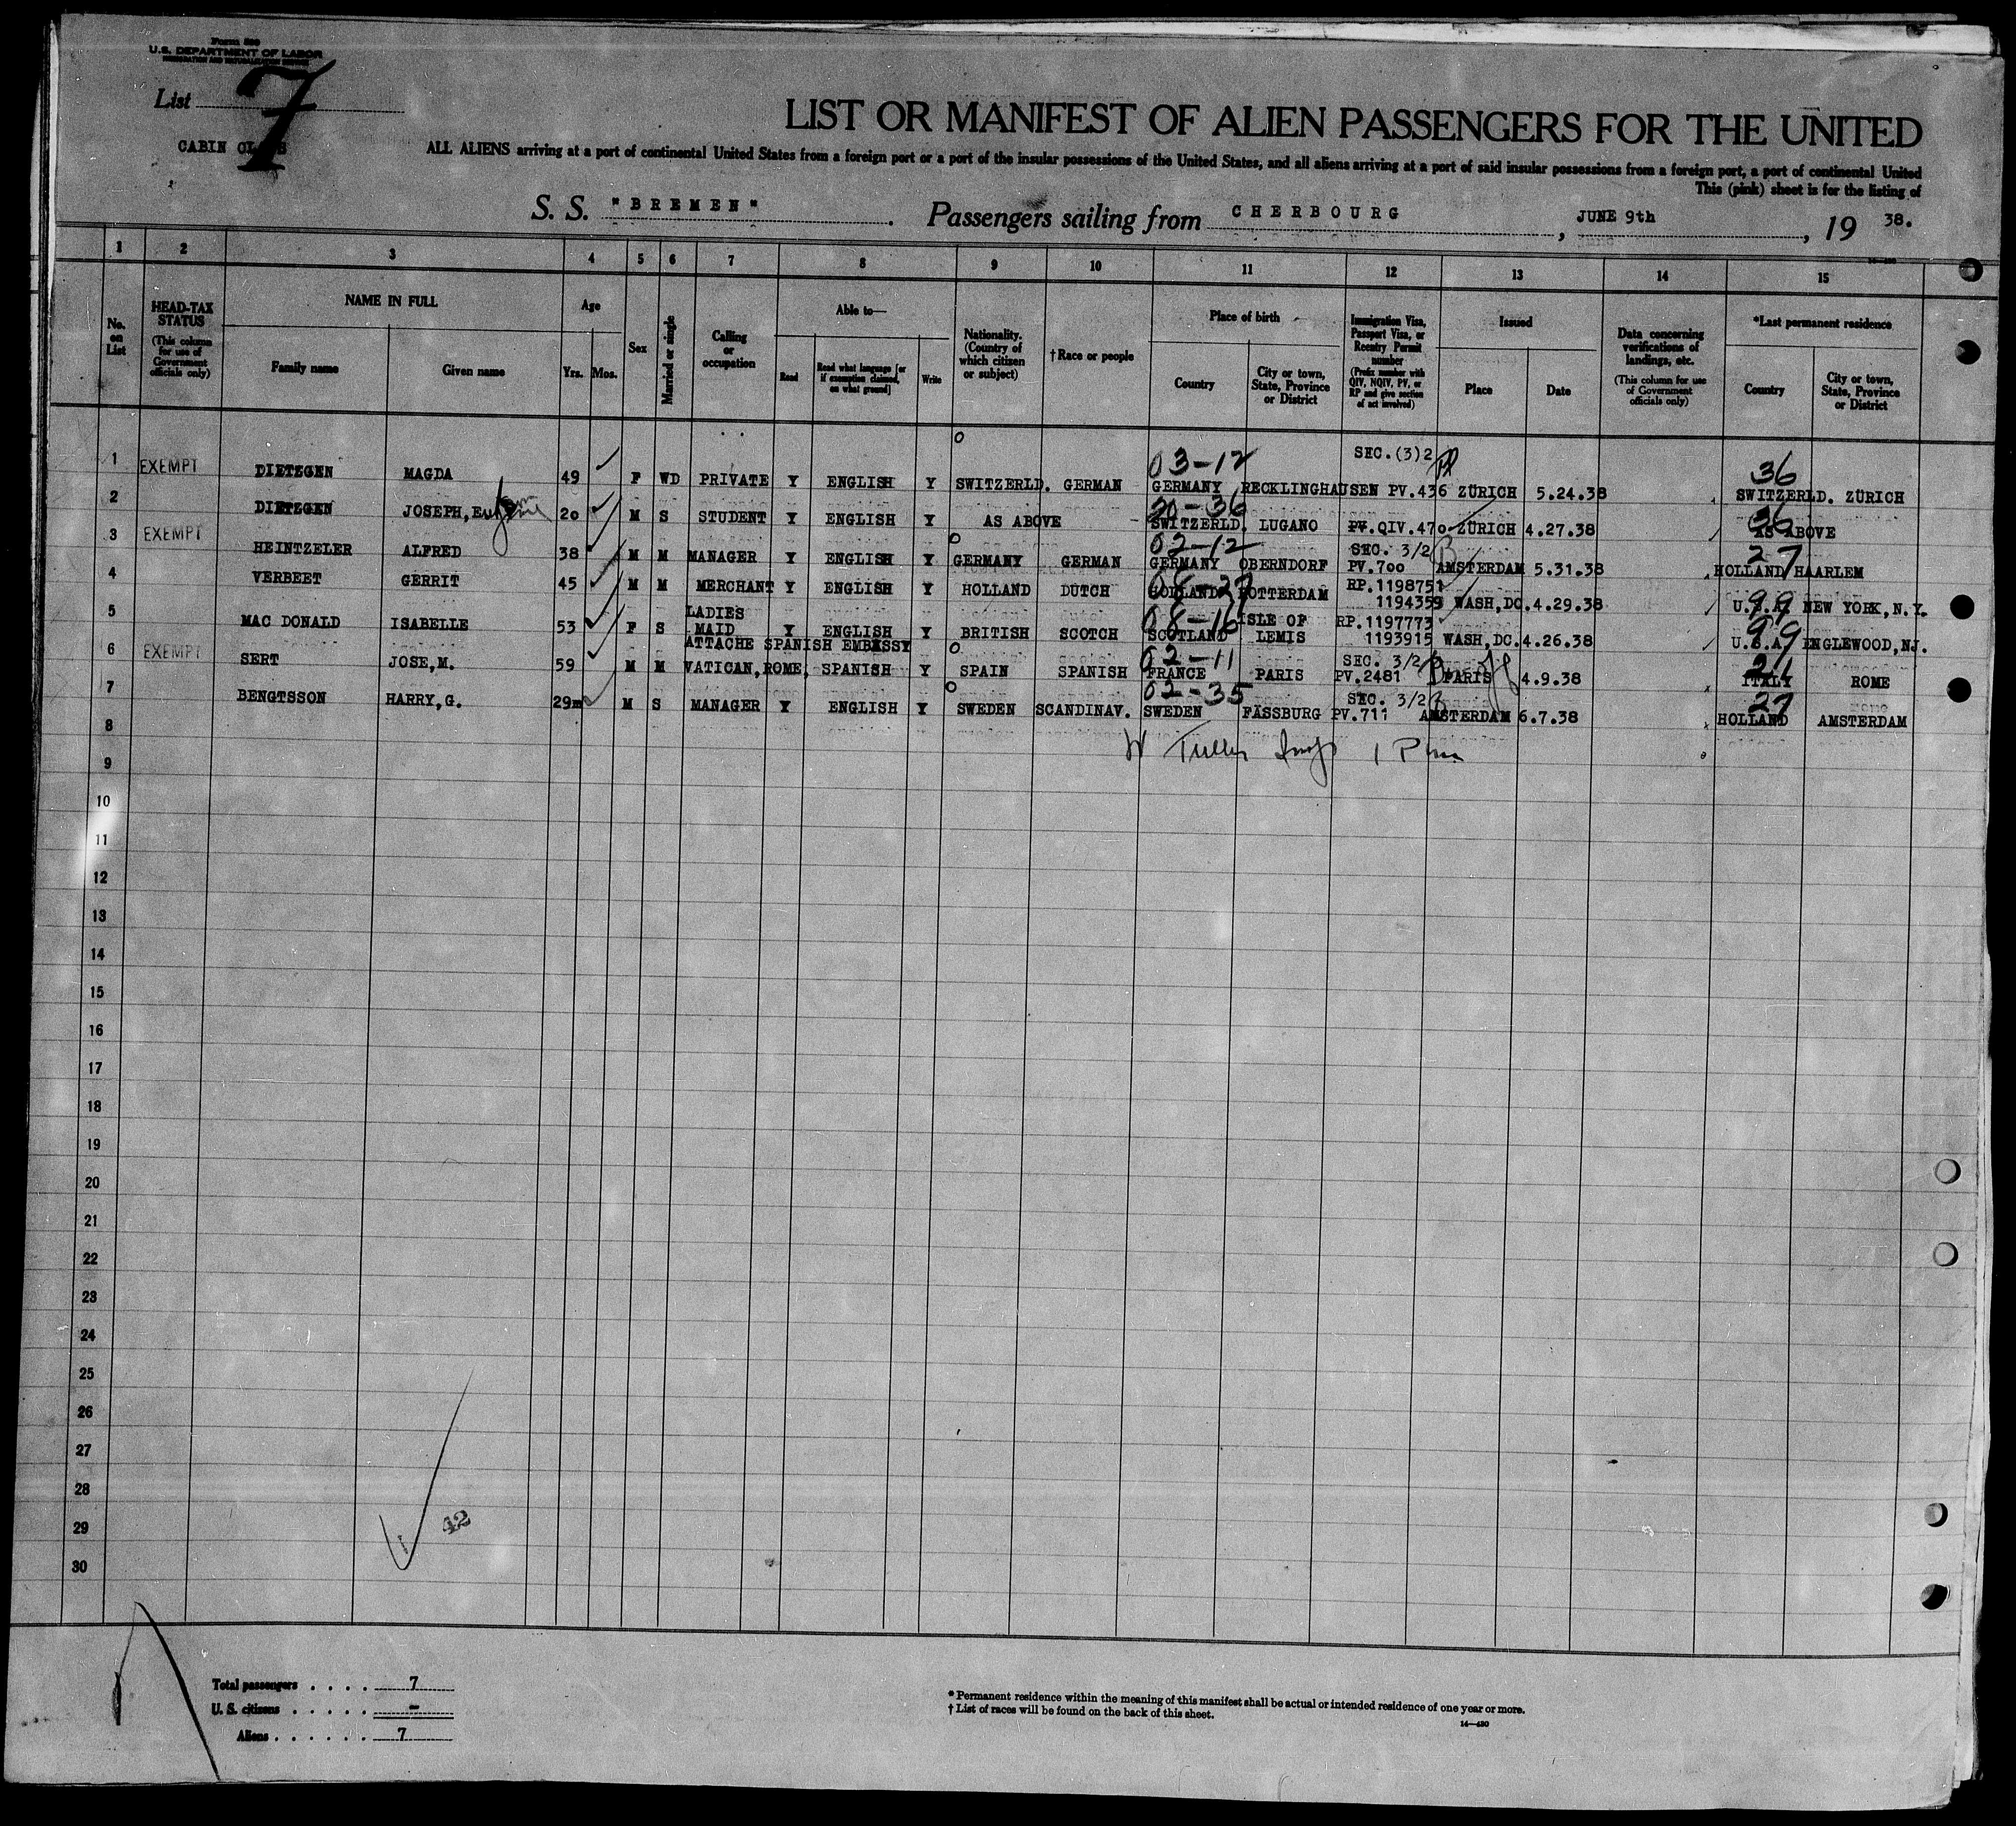 Form 500
U.S. DEPARTMENT OF LABOR
IMMIGRATION AND NATURALIZATION SERVICE
List 7
CABIN CLASS
LIST OR MANIFEST OF ALIEN PASSENGERS FOR THE UNITED
ALL ALIENS arriving at a port of continental United States from a foreign port or a port of the insular possessions of the United States, and all aliens arriving at a port of said insular possessions from a foreign port, a port of continental United
This (pink) sheet is for the listing of
S. S. "BREMEN". Passengers sailing from CHERBOURG, JUNE 9th, 19 38.
1 2 3 4 5 6 7 8 9 10 11 12 13 14 15
No. on List
HEAD-TAX STATUS (This column for use of Government officials only)
NAME IN FULL
Family name Given name
Age
Yrs. Mos.
Sex
Married or single
Calling or occupation
Able to—
Read Read what language [or if exemption claimed, on what ground] Write
Nationality. (Country of which citizen or subject)
†Race or people
Place of birth
Country City or town, State, Province or District
Immigration Visa, Passport Visa, or Reentry Permit number (Prefix number with QIV, NQIV, PV, or RP and give section of act involved)
Issued
Place Date
Data concerning verifications of landings, etc. (This column for use of Government officials only)
*Last permanent residence
Country City or town, State, Province or District
03-12 SEC.(3)2 36
1 EXEMPT DIETZGEN MAGDA 49 F WD PRIVATE Y ENGLISH Y SWITZERLD. GERMAN GERMANY RECKLINGHAUSEN PV.436 ZÜRICH 5.24.38 SWITZERLD. ZÜRICH
20-36 36
2 DIETZGEN JOSEPH, Eugene 20 M S STUDENT Y ENGLISH Y AS ABOVE SWITZERLD. LUGANO PV.QIV.470 ZÜRICH 4.27.38 AS ABOVE
02-12 SEC. 3/2 27
3 EXEMPT HEINTZELER ALFRED 38 M M MANAGER Y ENGLISH Y GERMANY GERMAN GERMANY OBERNDORF PV.700 AMSTERDAM 5.31.38 HOLLAND HAARLEM
08-27 RP.1198751 99
4 VERBEET GERRIT 45 M M MERCHANT Y ENGLISH Y HOLLAND DUTCH HOLLAND ROTTERDAM 1194359 WASH,DC.4.29.38 U.S.A. NEW YORK,N.Y.
LADIES 08-16 ISLE OF RP.1197773 99
5 MAC DONALD ISABELLE 53 F S MAID Y ENGLISH Y BRITISH SCOTCH SCOTLAND LEMIS 1193915 WASH,DC.4.26.38 U.S.A. ENGLEWOOD,NJ.
ATTACHE SPANISH EMBASSY 02-11 SEC. 3/2 21
6 EXEMPT SERT JOSE,M. 59 M M VATICAN,ROME, SPANISH Y SPAIN SPANISH FRANCE PARIS PV.2481 PARIS 4.9.38 ITALY ROME
02-35 SEC. 3/2 27
7 BENGTSSON HARRY,G. 29m M S MANAGER Y ENGLISH Y SWEDEN SCANDINAV. SWEDEN FÄSSBURG PV.711 AMSTERDAM 6.7.38 HOLLAND AMSTERDAM
8
9
10
11
12
13
14
15
16
17
18
19
20
21
22
23
24
25
26
27
28
29
42
30
Total passengers . . . . 7
U. S. citizens . . . . . –
Aliens . . . . . . 7
* Permanent residence within the meaning of this manifest shall be actual or intended residence of one year or more.
† List of races will be found on the back of this sheet.
14—430